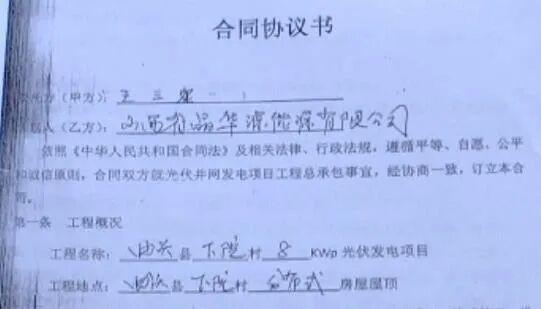 合同协议书
方(甲方):王三
人(乙方):山西省晶华源能源有限公司
依照《中华人民共和国合同法》及相关法律、行政法规,遵循平等、自愿、公平
和诚信原则,合同双方就光伏并网发电项目工程总承包事宜,经协商一致,订立本合
同。
第一条 工程概况
工程名称: 县下院村 8 KWp 光伏发电项目
工程地点: 县下院村 分布式 房屋屋顶